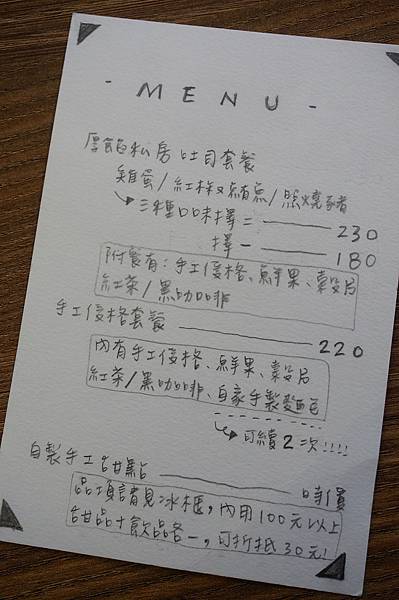 - MENU -
厚飽私房吐司套餐
雞蛋/紅椒鮪魚/照燒豬
三種口味擇二 230
擇一 180
附餐有:手工優格、鮮果、穀片
紅茶/黑咖啡
手工優格套餐 220
內有手工優格、鮮果、穀片
紅茶/黑咖啡、自家手製麵包
可續2次!!!!
自製手工甜點 時價
品項請見冰櫃,內用100元以上
甜品+飲品各一,可折抵30元!